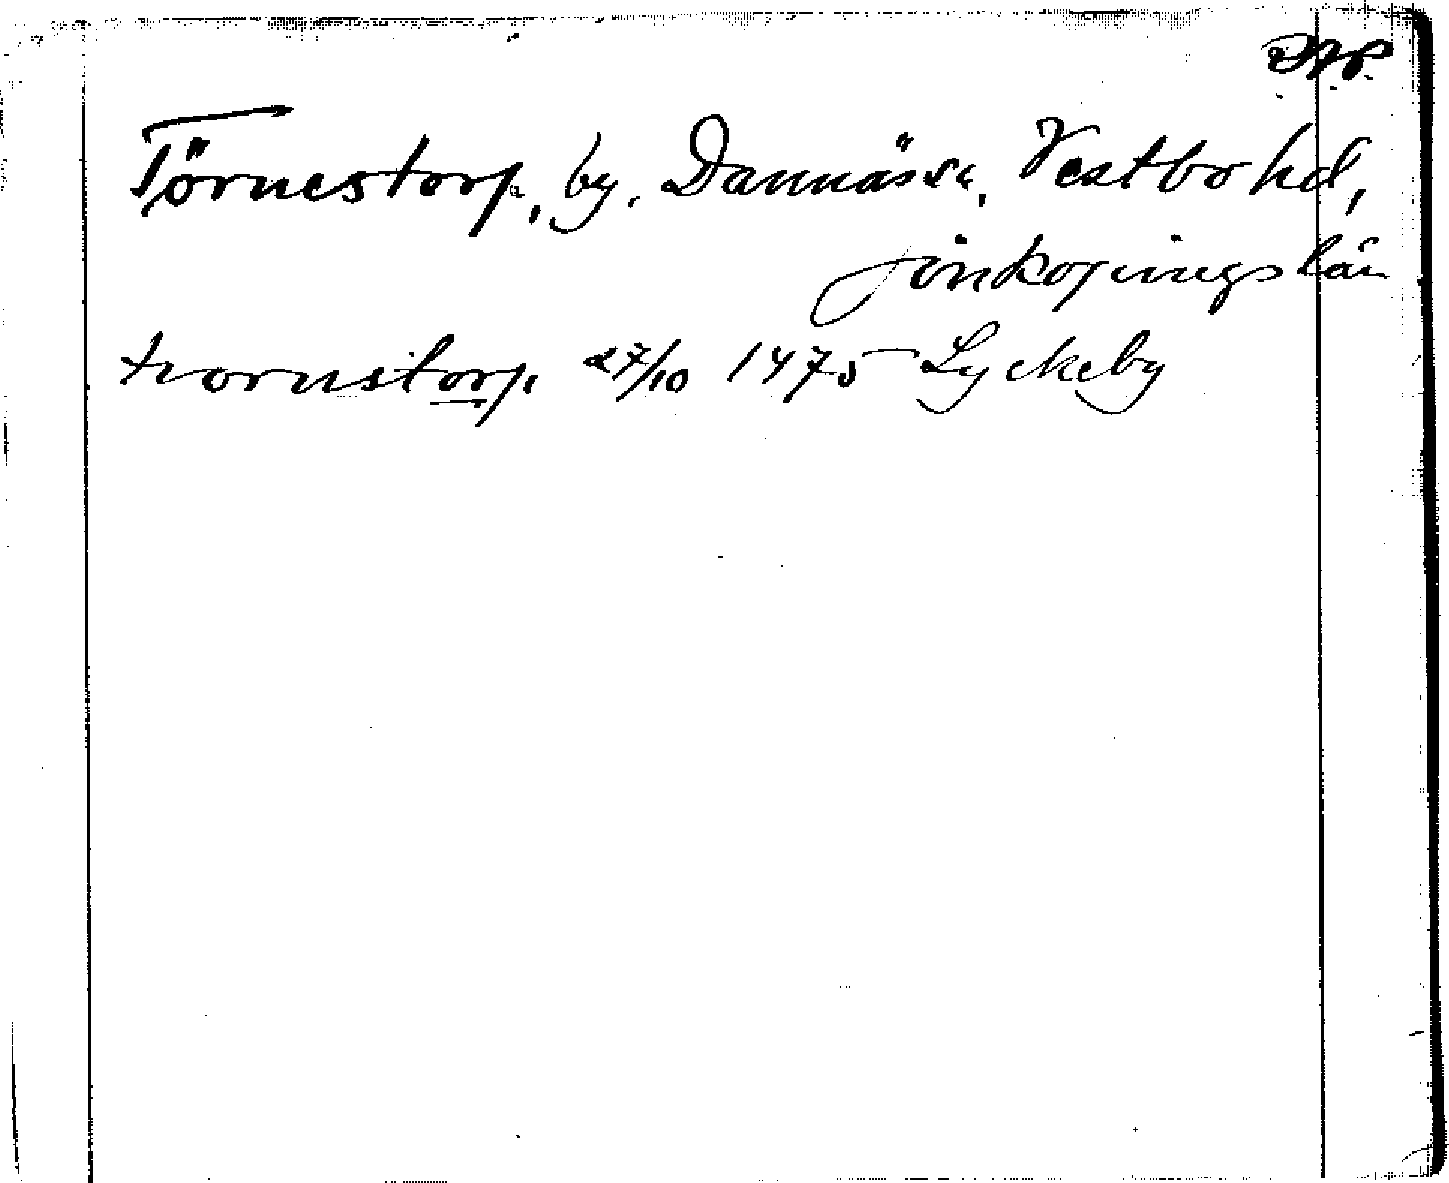 Törnestorp, by, Dannäs sn, Vestbo hd,
Jönköpings län
trornstorp 27/10 1475 Lyckeby